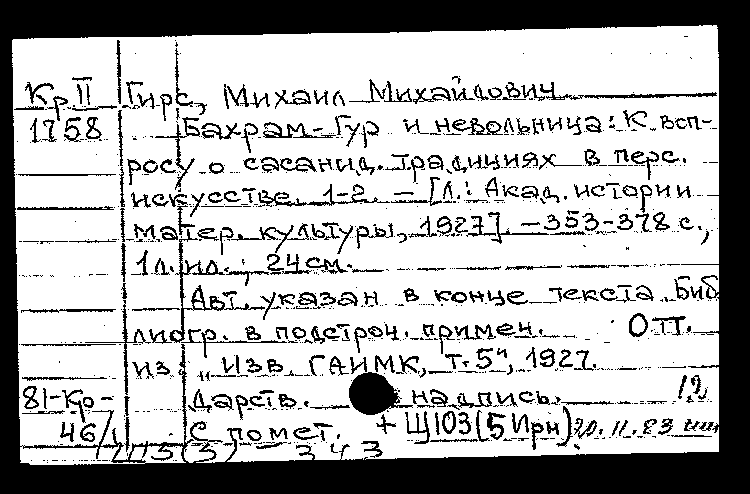 Кр II Гирс, Михаил Михайлович
1758 Бахрам-Гур и невольница: К воп-
росу о сасанид. традициях в перс.
искусстве. 1-2. – [Л.: Акад. истории
матер. культуры, 1927]. – 353-378 с.,
1 л. ил.; 24 см.
Авт. указан в конце текста. Биб
лиогр. в подстроч. примен. Отт.
из: „Изв. ГАИМК, т. 5", 1927.
81-Кр- Дарств. надпись. 12
46/ С помет. + Щ103(5Ирн) 20.11.83
343